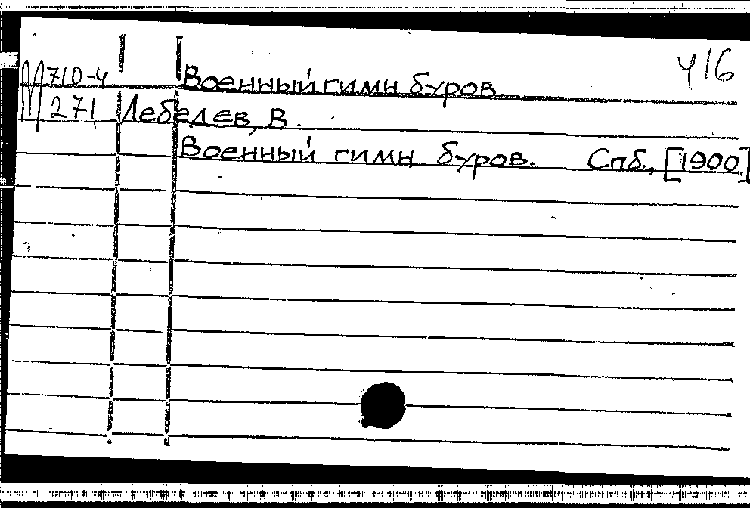 416
М 710-4 Военный гимн буров
271 Лебедев, В.
Военный гимн буров. Спб, [1900]